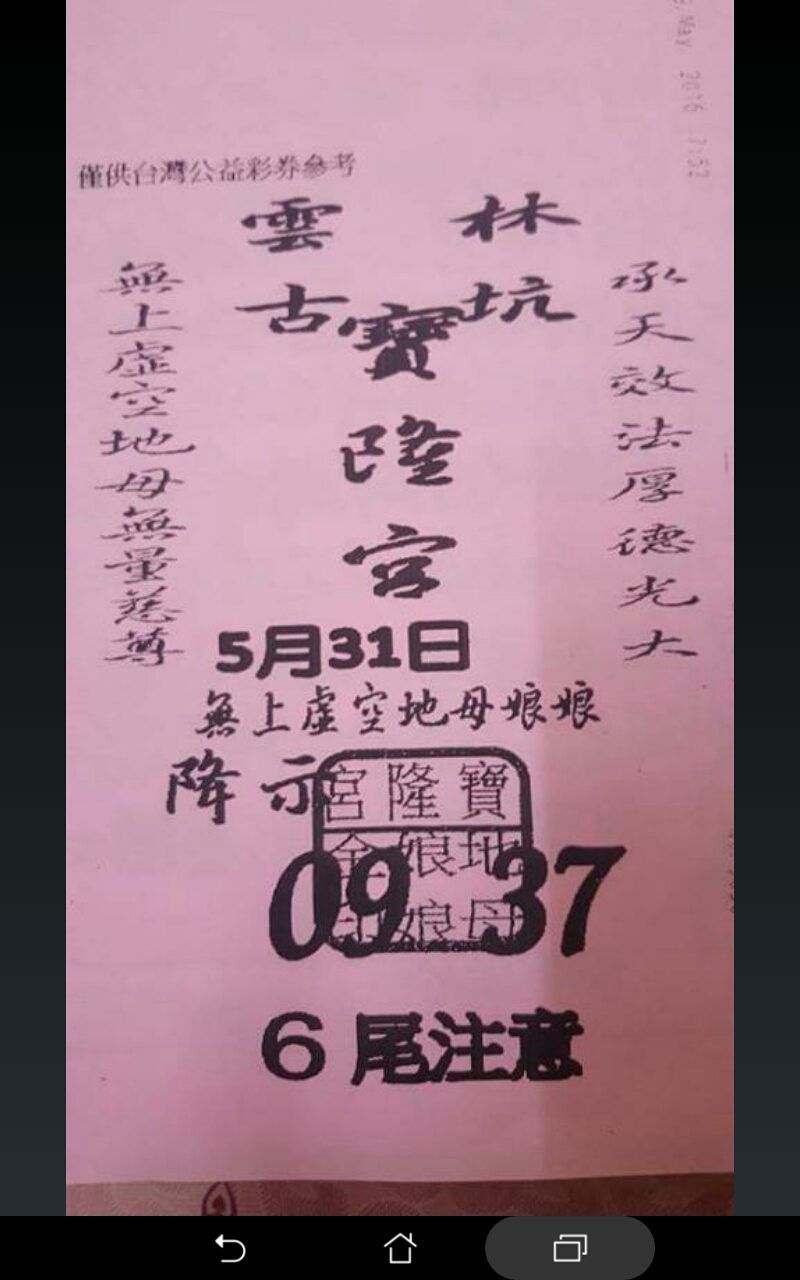 May 2016 7:52
僅供台灣公益彩券參考
雲林
古坑
寶隆宮
承天效法厚德光大
無上虛空地母無量慈尊
5月31日
無上虛空地母娘娘
降示
寶隆宮
地母娘娘金印
09 37
6尾注意